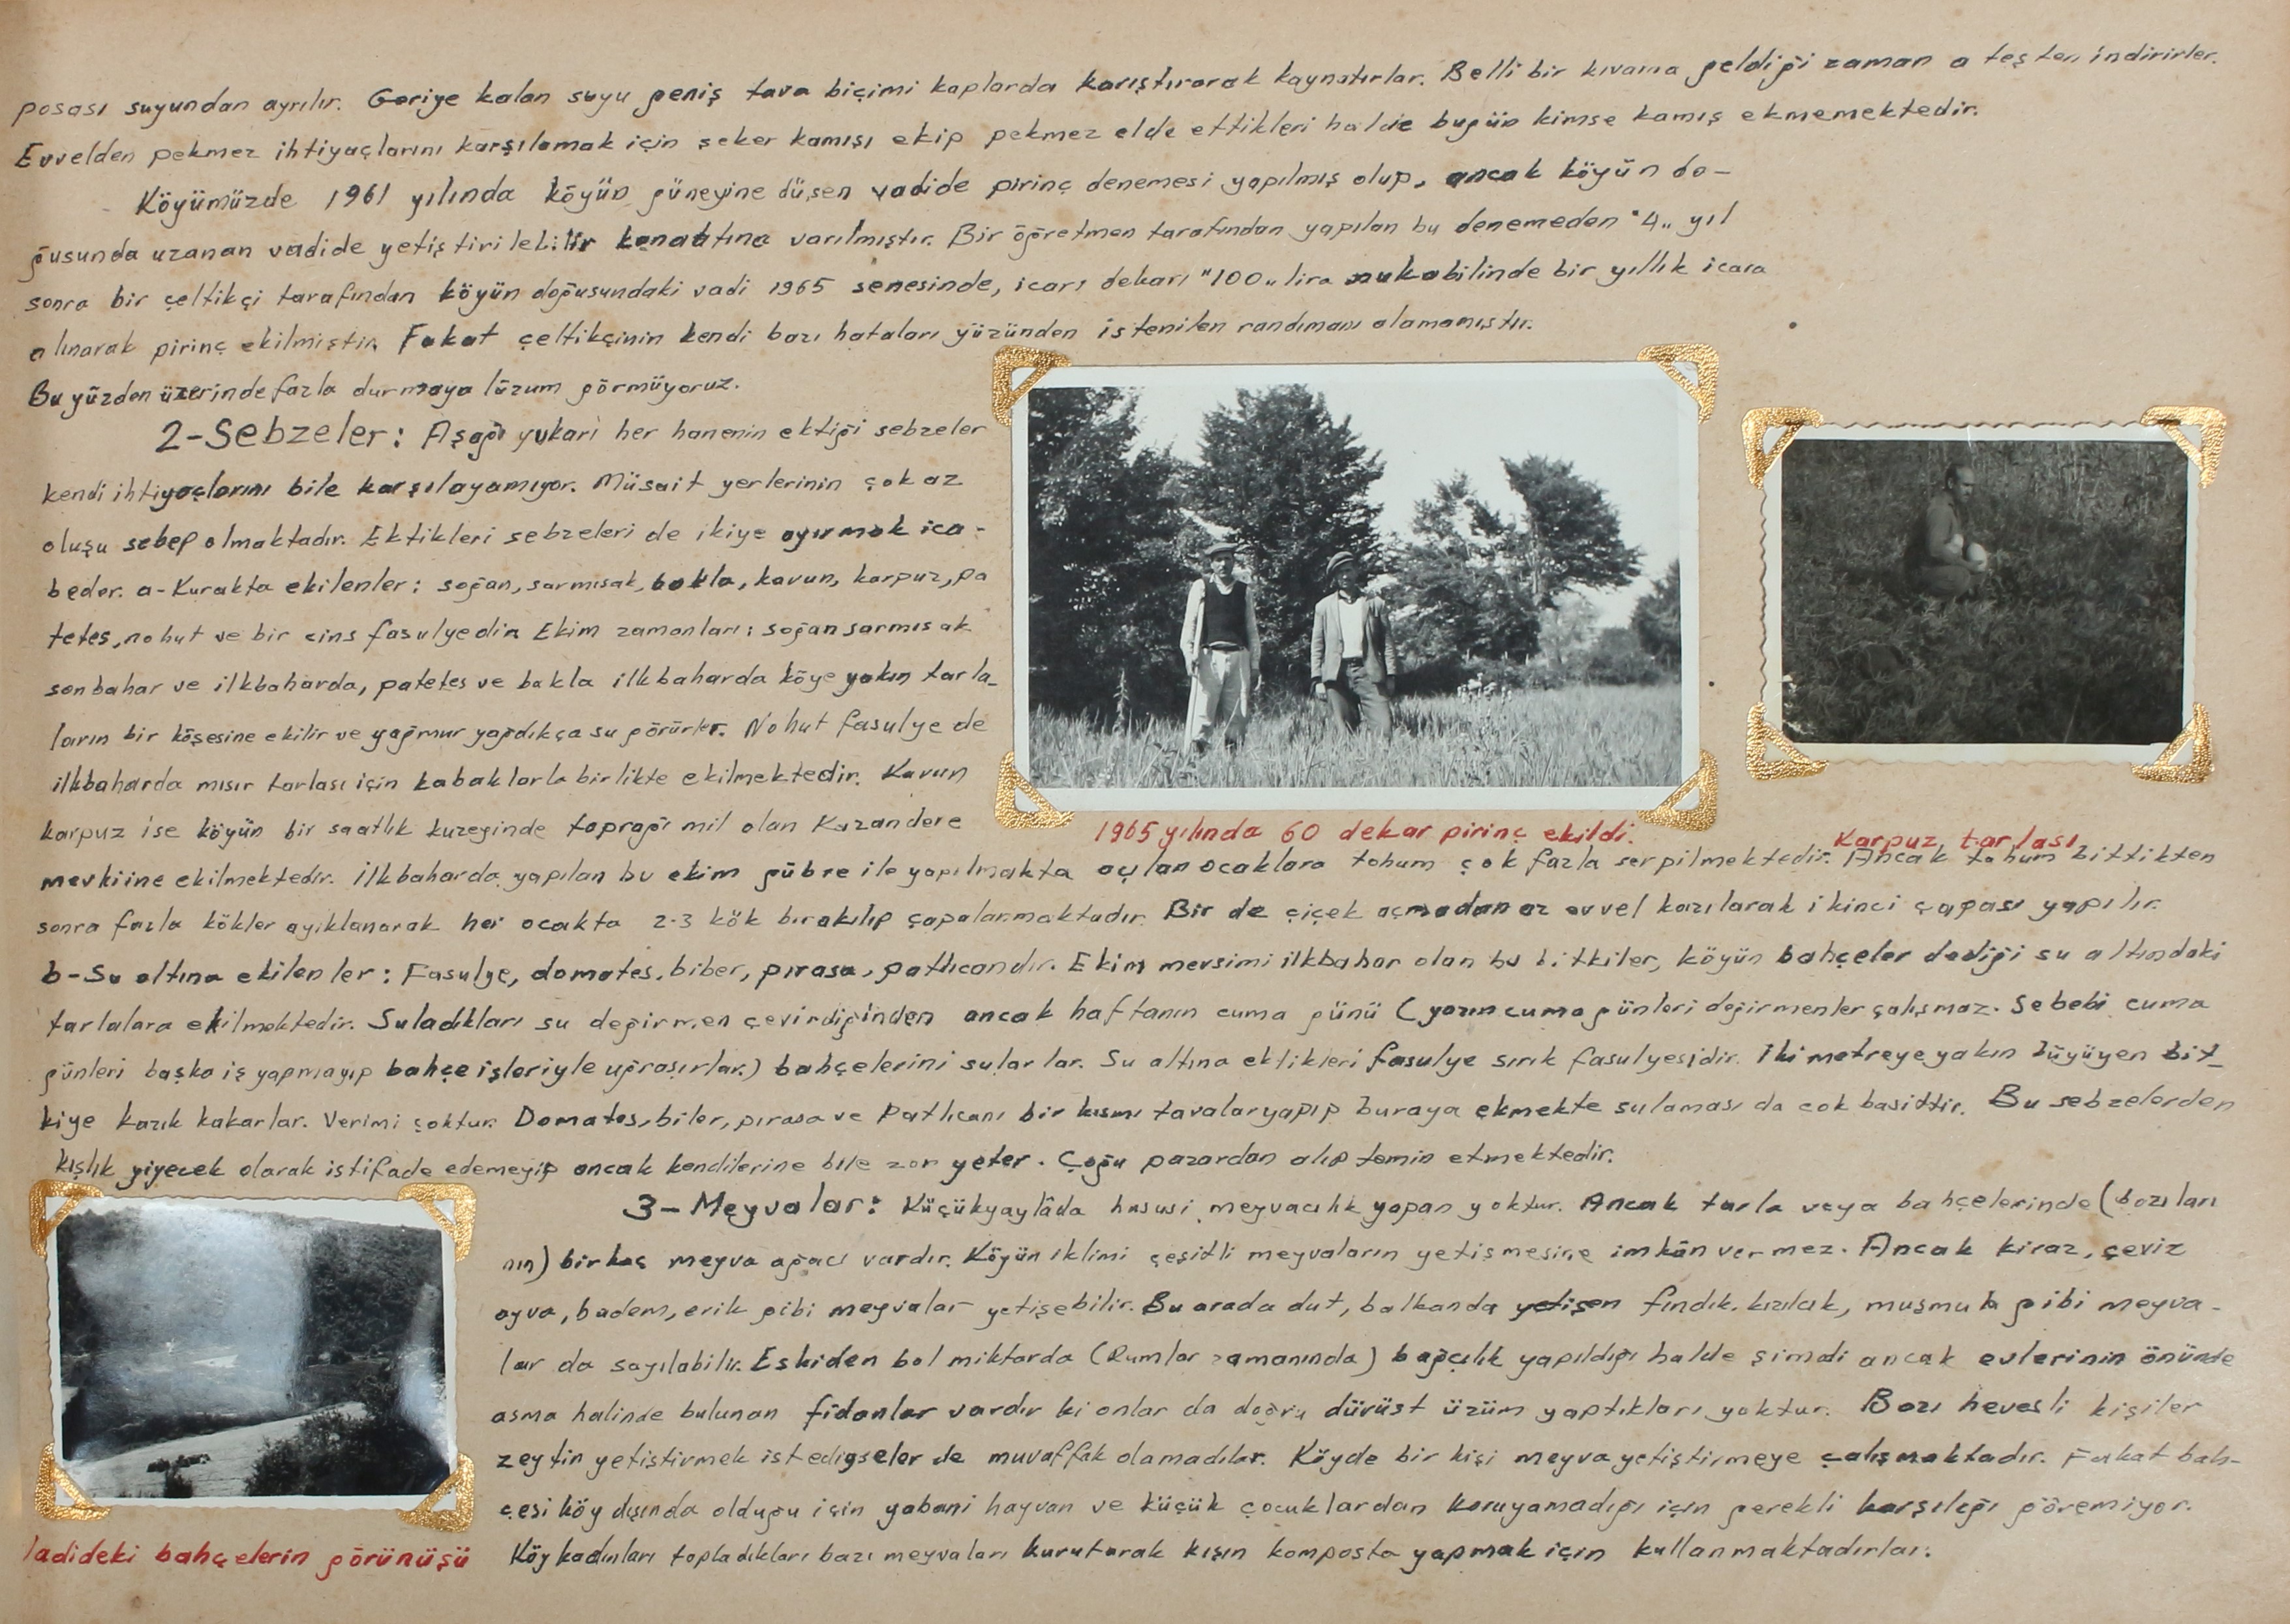 posası suyundan ayrılır. Geriye kalan suyu geniş tava biçimi kaplarda karıştırarak kaynatırlar. Belli bir kıvama geldiği zaman ateşten indirirler.
Evvelden pekmez ihtiyaçlarını karşılamak için şeker kamışı ekip pekmez elde ettikleri halde bugün kimse kamış ekmemektedir.
Köyümüzde 1961 yılında köyün güneyine düşen vadide pirinç denemesi yapılmış olup, ancak köyün do-
ğusunda uzanan vadide yetiştirilebilir kanaatına varılmıştır. Bir öğretmen tarafından yapılan bu denemeden "4" yıl
sonra bir çeltikçi tarafından köyün doğusundaki vadi 1965 senesinde, icarı dekarı "100" lira mukabilinde bir yıllık icara
alınarak pirinç ekilmiştir. Fakat çeltikçinin kendi bazı hataları yüzünden istenilen randımanı alamamıştır.
Bu yüzden üzerinde fazla durmaya lüzum görmüyoruz.
2-Sebzeler: Aşağı yukarı her hanenin ektiği sebzeler
kendi ihtiyaçlarını bile karşılayamıyor. Müsait yerlerinin çok az
oluşu sebep olmaktadır. Ektikleri sebzeleri de ikiye ayırmak ica-
beder. a-Kurakta ekilenler: soğan, sarmısak, bakla, kavun, karpuz, pa
tetes, nohut ve bir cins fasulyedir. Ekim zamanları: soğan sarmısak
sonbahar ve ilkbaharda, patetes ve bakla ilkbaharda köye yakın tarla-
ların bir köşesine ekilir ve yağmur yağdıkça su görürler. Nohut fasulye de
ilkbaharda mısır tarlası için kabaklarla birlikte ekilmektedir. Kavun
karpuz ise köyün bir saatlık kuzeyinde toprağı mil olan Kazandere
1965 yılında 60 dekar pirinç ekildi.
Karpuz tarlası
mevkiine ekilmektedir. İlkbaharda yapılan bu ekim gübre ile yapılmakta açılan ocaklara tohum çok fazla serpilmektedir. Ancak tohum bittikten
sonra fazla kökler ayıklanarak her ocakta 2-3 kök bırakılıp çapalanmaktadır. Bir de çiçek açmadan az evvel kazılarak ikinci çapası yapılır.
b-Su altına ekilenler: Fasulye, domates, biber, pırasa, patlıcandır. Ekim mevsimi ilkbahar olan bu bitkiler, köyün bahçeler dediği su altındaki
tarlalara ekilmektedir. Suladıkları su değirmen çevirdiğinden ancak haftanın cuma günü (yazın cuma günleri değirmenler çalışmaz. Sebebi cuma
günleri başka iş yapmayıp bahçe işleriyle uğraşırlar.) bahçelerini sularlar. Su altına ektikleri fasulye sırık fasulyesidir. İki metreye yakın büyüyen bit-
kiye kazık kakarlar. Verimi çoktur. Domates, biber, pırasa ve Patlıcanı bir kısmı tavalar yapıp buraya ekmekte sulaması da çok basittir. Bu sebzelerden
kışlık yiyecek olarak istifade edemeyip ancak kendilerine bile zor yeter. Çoğu pazardan alıp temin etmektedir.
3-Meyvalar: Küçükyaylâda hususi meyvacılık yapan yoktur. Ancak tarla veya bahçelerinde (bazıları
nın) birkaç meyva ağacı vardır. Köyün iklimi çeşitli meyvaların yetişmesine imkân vermez. Ancak kiraz, ceviz
ayva, badem, erik gibi meyvalar yetişebilir. Bu arada dut, balkanda yetişen fındık, kızılcık, muşmula gibi meyva-
lar da sayılabilir. Eskiden bol miktarda (Rumlar zamanında) bağcılık yapıldığı halde şimdi ancak evlerinin önünde
asma halinde bulunan fidanlar vardır ki onlar da doğru dürüst üzüm yaptıkları yoktur. Bazı hevesli kişiler
zeytin yetiştirmek istediyseler de muvaffak olamadılar. Köyde bir kişi meyva yetiştirmeye çalışmaktadır. Fakat bah-
çesi köy dışında olduğu için yabani hayvan ve küçük çocuklardan koruyamadığı için gerekli karşılığı göremiyor.
Köy kadınları topladıkları bazı meyvaları kurutarak kışın komposto yapmak için kullanmaktadırlar.
ladideki bahçelerin görünüşü